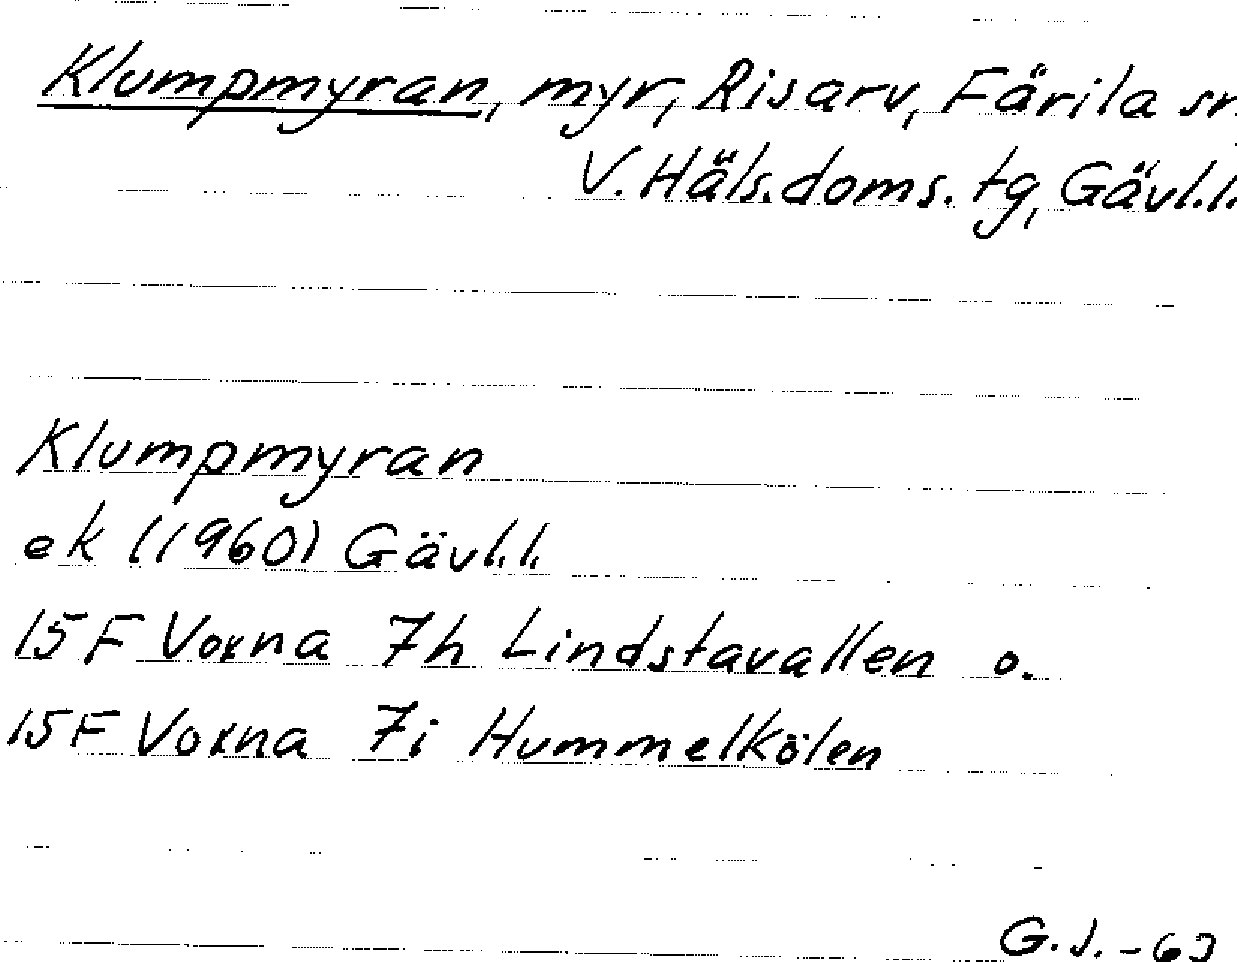 Klumpmyran, myr, Risarv, Färila sn
V. Häls. doms. tg, Gävl.l.
Klumpmyran
ek (1960) Gävl.l.
15F Voxna 7h Lindstavallen o.
15F Voxna 7i Hummelkölen
G.J. -63